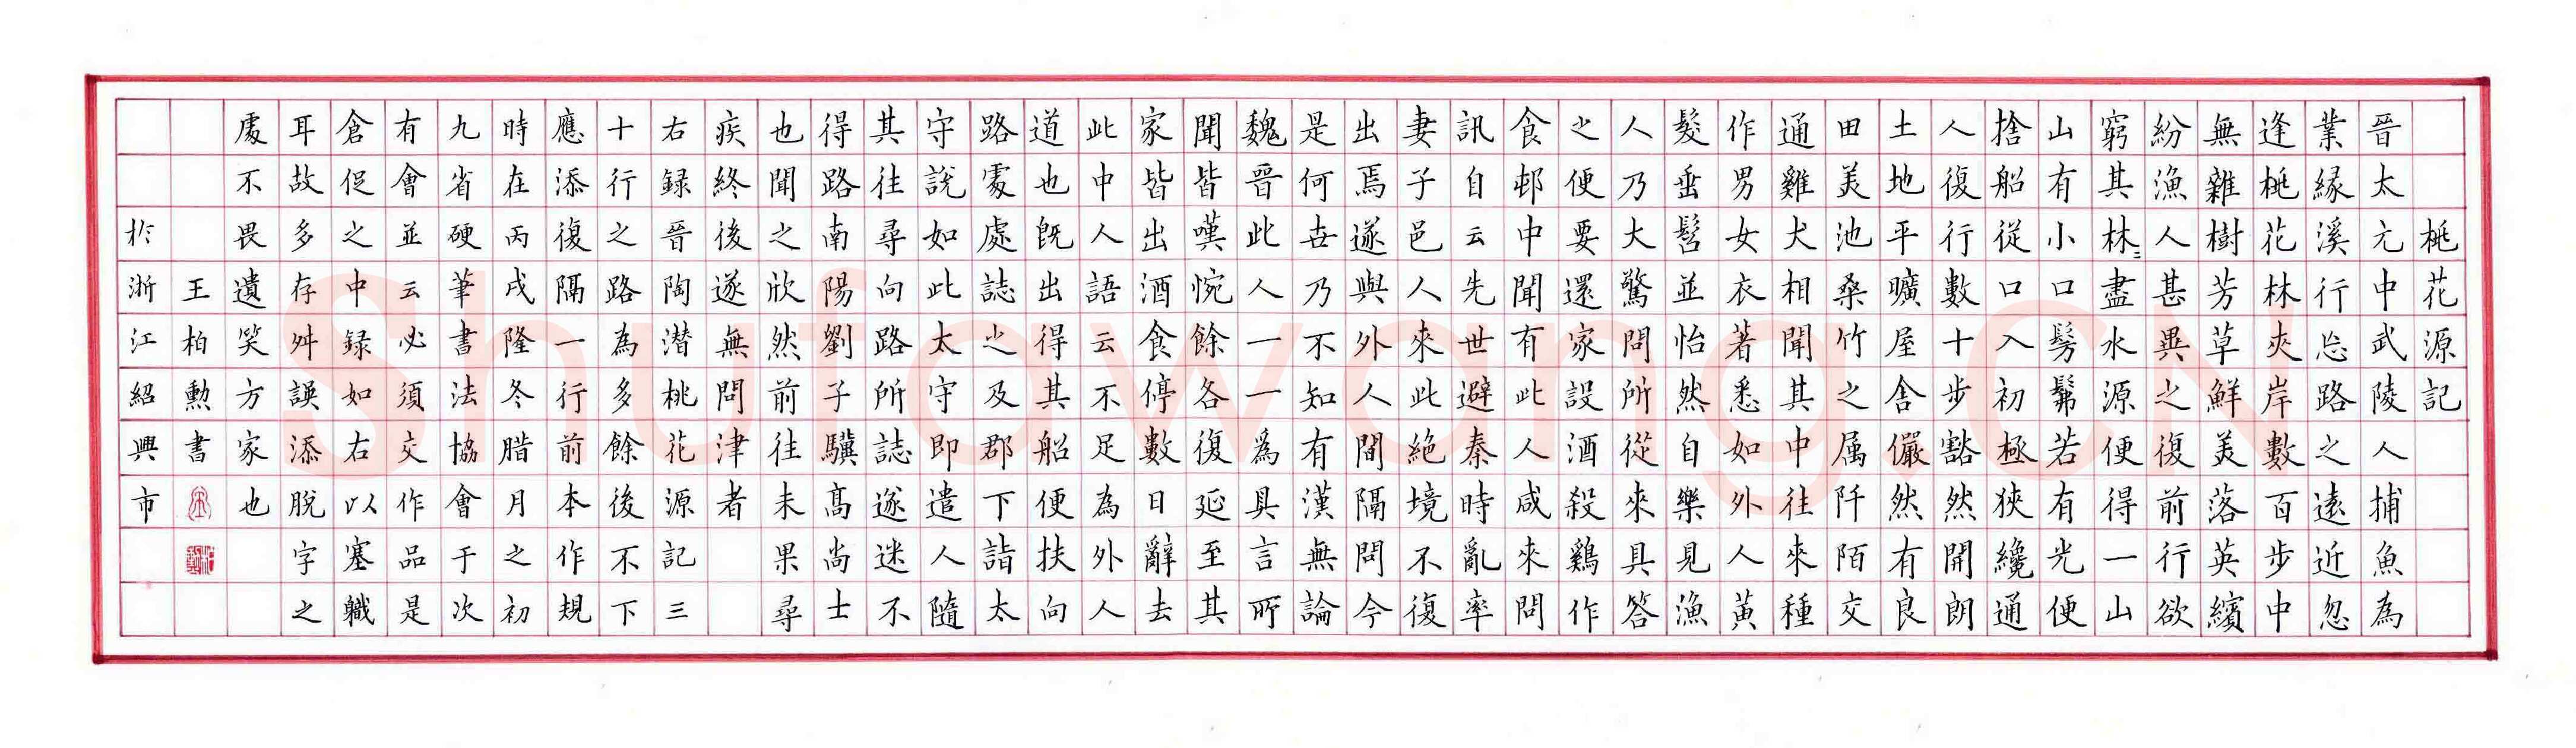 桃花源記
晉太元中武陵人捕魚為
業緣溪行忘路之遠近忽
逢桃花林夾岸數百步中
無雜樹芳草鮮美落英繽
紛漁人甚異之復前行欲
窮其林〻盡水源便得一山
山有小口髣髴若有光便
捨船從口入初極狹纔通
人復行數十步豁然開朗
土地平曠屋舍儼然有良
田美池桑竹之属阡陌交
通雞犬相聞其中往來種
作男女衣著悉如外人黃
髮垂髫並怡然自樂見漁
人乃大驚問所從來具答
之便要還家設酒殺鷄作
食邨中聞有此人咸來問
訊自云先世避秦時亂率
妻子邑人來此絕境不復
出焉遂與外人間隔問今
是何世乃不知有漢無論
魏晉此人一一為具言所
聞皆嘆惋餘各復延至其
家皆出酒食停數日辭去
此中人語云不足為外人
道也既出得其船便扶向
路處處誌之及郡下詣太
守說如此太守即遣人隨
其往尋向路所誌遂迷不
得路南陽劉子驥高尚士
也聞之欣然前往未果尋
疾終後遂無問津者
右録晉陶潛桃花源記三
十行之路為多餘後不下
應添復隔一行前本作規
時在丙戌隆冬腊月之初
九省硬筆書法協會于次
有會並云必須交作品是
倉促之中録如右以塞職
耳故多存舛誤添脫字之
處不畏遺笑方家也
王柏勳書
於浙江紹興市
Shufawang.CN